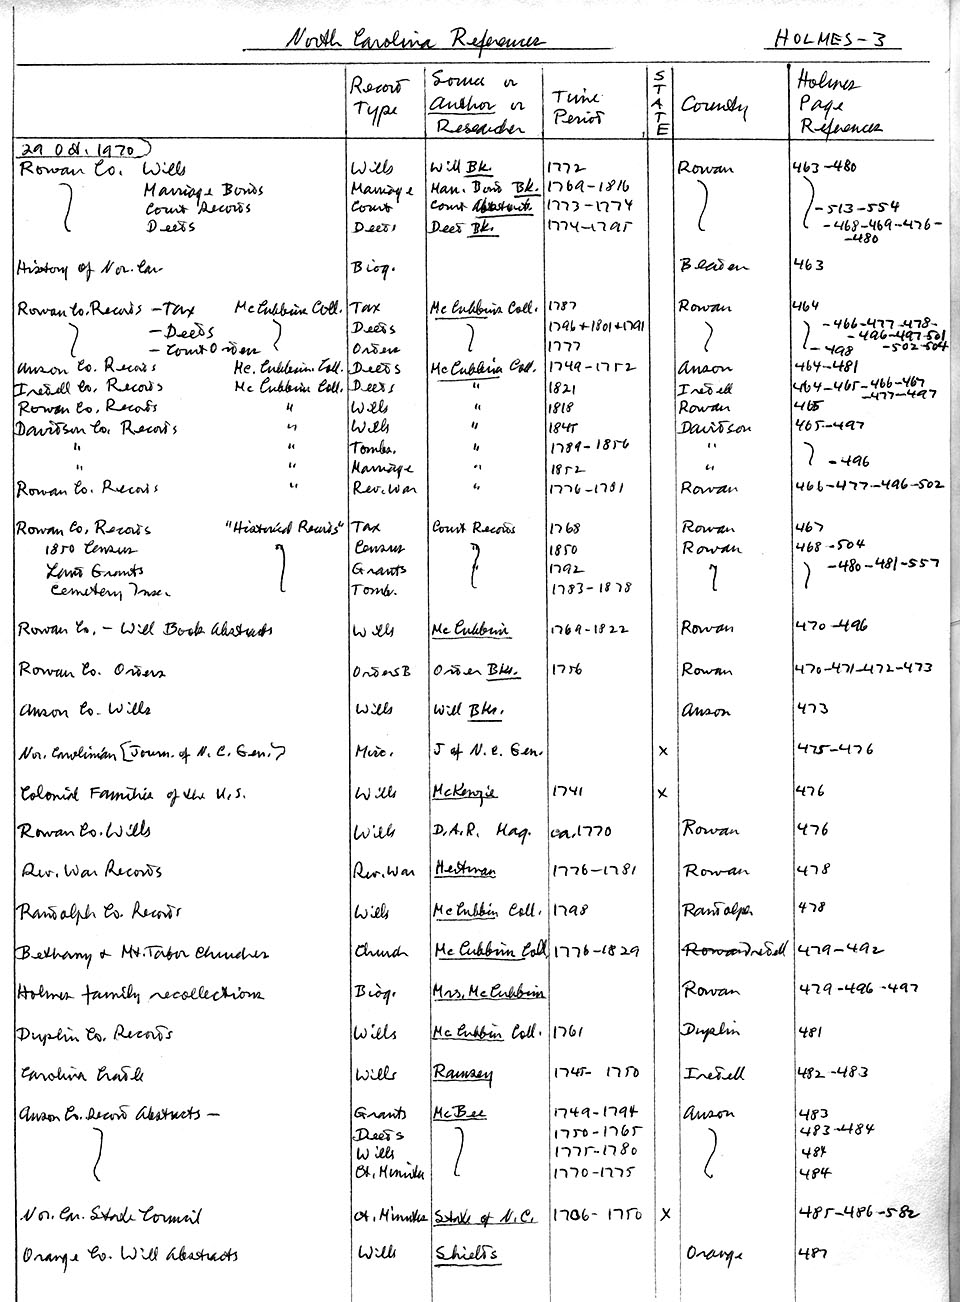 North Carolina References HOLMES-3
Record Type Source or Author or Researcher Time Period STATE County Holmes Page References
29 Oct. 1970
Rowan Co. Wills Wills Will Bk. 1772 Rowan 463-480
Marriage Bonds Marriage Marr. Bond Bk. 1769-1816
Court Records Court Court Abstracts 1773-1774 -513-554
Deeds Deeds Deed Bk. 1774-1795 -468-469-476-
-480
History of Nor. Car Biog. Bladen 463
Rowan Co. Records - Tax McCubbins Coll. Tax McCubbins Coll. 1787 Rowan 464
- Deeds Deeds 1796+1801+1791 -466-477-478-
-496-497-501
- Court Orders Orders 1777 -498 -502-504
Anson Co. Records Mc. Cubbins Coll. Deeds McCubbins Coll. 1749-1752 Anson 464-481
Iredell Co. Records McCubbins Coll. Deeds " 1821 Iredell 464-465-466-467
-477-497
Rowan Co. Records " Wills " 1818 Rowan 465
Davidson Co. Records " Wills " 1845 Davidson 465-497
" " Tombs. " 1789-1856 "
" " Marriage " 1852 " -496
Rowan Co. Records " Rev. War " 1776-1781 Rowan 466-477-496-502
Rowan Co. Records "Historical Records" Tax Court Records 1768 Rowan 467
1850 Census Census 1850 Rowan 468-504
Land Grants Grants 1792 -480-481-557
Cemetery Inscr. Tomb. 1783-1878
Rowan Co. - Will Book Abstracts Wills McCubbin 1769-1822 Rowan 470-496
Rowan Co. Orders Orders B Order Bks. 1756 Rowan 470-471-472-473
Anson Co. Wills Wills Will Bks. Anson 473
Nor. Carolinian [Journ. of N.C. Gen.] Misc. J of N.C. Gen. x 475-476
Colonial Families of the U.S. Wills McKenzie 1741 x 476
Rowan Co. Wills Wills D.A.R. Mag. ca. 1770 Rowan 476
Rev. War Records Rev. War Heitman 1776-1781 Rowan 478
Randolph Co. Records Wills McCubbin Coll. 1798 Randolph 478
Bethany & Mt. Tabor Churches Church McCubbin Coll 1776-1829 Rowan Iredell 479-492
Holmes family recollections Biog. Mrs. McCubbins Rowan 479-496-497
Duplin Co. Records Wills McCubbin Coll. 1761 Duplin 481
Carolina Cradle Wills Ramsey 1745-1750 Iredell 482-483
Anson Co. Record Abstracts - Grants McBee 1749-1794 Anson 483
Deeds 1750-1765 483-484
Wills 1775-1780 484
Ct. Minutes 1770-1775 484
Nor. Car. State Council Ct. Minutes State of N.C. 1706-1750 X 485-486-582
Orange Co. Will Abstracts Wills Shields Orange 487